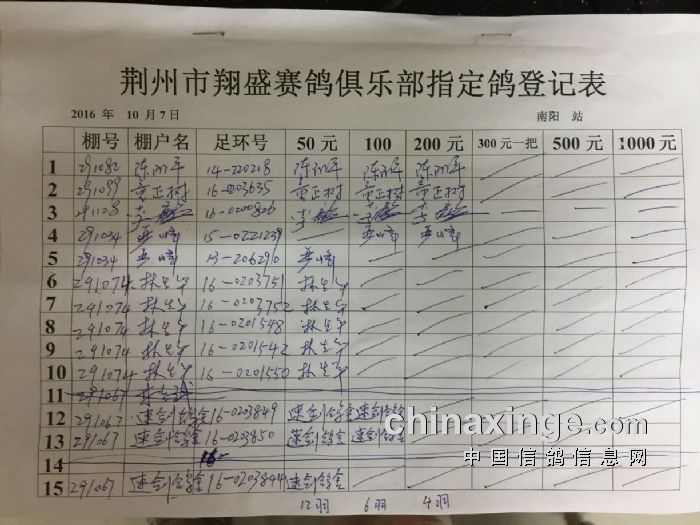 荆州市翔盛赛鸽俱乐部指定鸽登记表
2016 年 10 月 7 日 南阳 站
棚号 棚户名 足环号 50 元 100 200 元 300 元一把 500 元 1000 元
1 291082 14-220218
2 291099 童正树 16-0203635 童正树 童正树 童正树
3 李 16-0200806 李 李 李
4 291034 15-0221239
5 291034 13-206290
6 291074 林生 16-0203751 林生
7 291074 林生 16-0203752 林生
8 291074 林生 16-0201548 林生
9 291074 林生 16-0201542 林生
10 291074 林生 16-0201550 林生
11 291067
12 291067 速剑鸽舍 16-0203849 速剑鸽舍 速剑鸽舍
13 291067 速剑鸽舍 16-0203850 速剑鸽舍 速剑鸽舍
14 16-
15 291067 速剑鸽舍 16-0203844 速剑鸽舍
12羽 6羽 4羽
chinaxinge.com
中国信鸽信息网